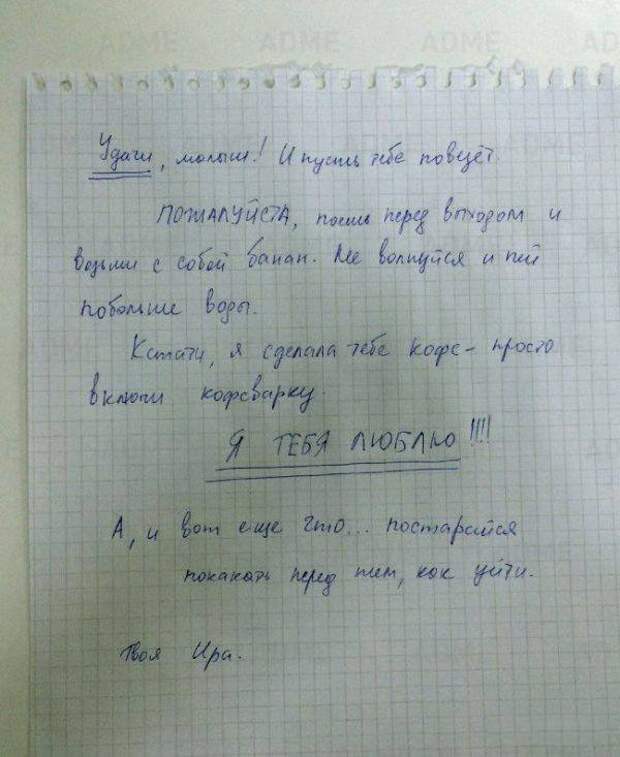 ADME ADME ADME
Удачи, малыш! И пусть тебе повезёт.
ПОЖАЛУЙСТА, поешь перед выходом и
возьми с собой банан. Не волнуйся и пей
побольше воды.
Кстати, я сделала тебе кофе – просто
включи кофеварку.
Я ТЕБЯ ЛЮБЛЮ!!!!
А, и вот еще что... постарайся
покакать перед тем, как уйти.
Твоя Ира.